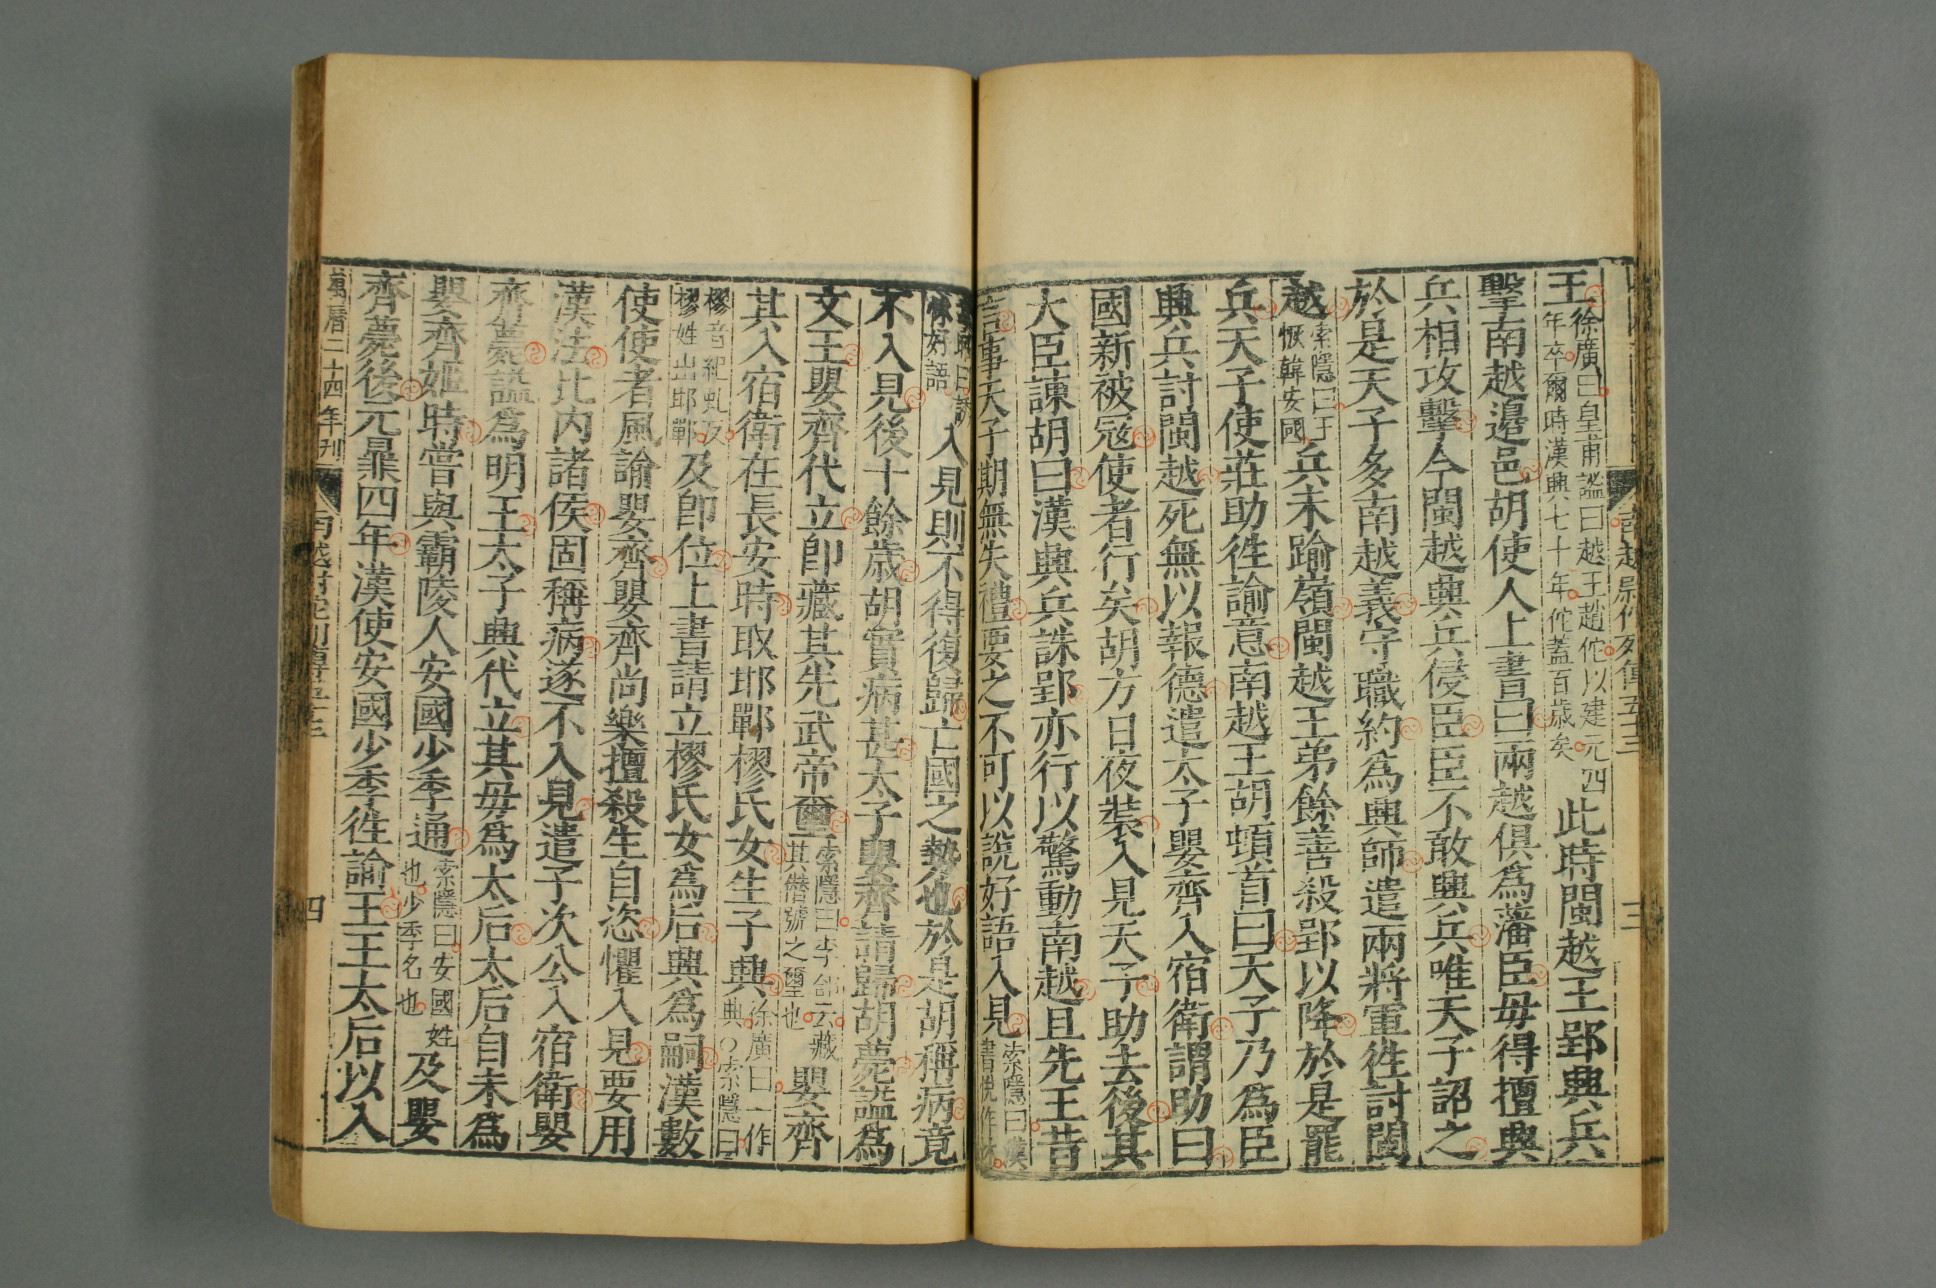 王徐廣曰皇甫謐曰越王趙佗以建元四年卒爾時漢興七十年佗蓋百歲矣此時閩越王郢興兵
擊南越邊邑胡使人上書曰兩越俱為藩臣毋得擅興
兵相攻擊今閩越興兵侵臣臣不敢興兵唯天子詔之
於是天子多南越義守職約為興師遣兩將軍徃討閩
越索隱曰王恢韓安國兵未踰嶺閩越王弟餘善殺郢以降於是罷
兵天子使莊助徃諭意南越王胡頓首曰天子乃為臣
興兵討閩越死無以報德遣太子嬰齊入宿衛謂助曰
國新被寇使者行矣胡方日夜裝入見天子助去後其
大臣諫胡曰漢興兵誅郢亦行以驚動南越且先王昔
言事天子期無失禮要之不可以說好語入見索隱曰漢書悅作怵
好語入見則不得復歸亡國之勢也於是胡稱病竟
不入見後十餘歲胡實病甚太子嬰齊請歸胡薨謚為
文王嬰齊代立即藏其先武帝璽索隱曰李奇云藏其僭號之璽也嬰齊
其入宿衛在長安時取邯鄲樛氏女生子興徐廣曰一作典○索隱曰
樛音紀虬反樛姓出邯鄲及即位上書請立樛氏女為后興為嗣漢數
使使者風諭嬰齊嬰齊尚樂擅殺生自恣懼入見要用
漢法比內諸侯固稱病遂不入見遣子次公入宿衛嬰
齊薨謚為明王太子興代立其母為太后太后自未為
嬰齊姬時嘗與霸陵人安國少季通索隱曰安國姓也少季名也及嬰
齊薨後元鼎四年漢使安國少季徃諭王王太后以入
萬曆二十四年刊 南越尉佗列傳五十三 四